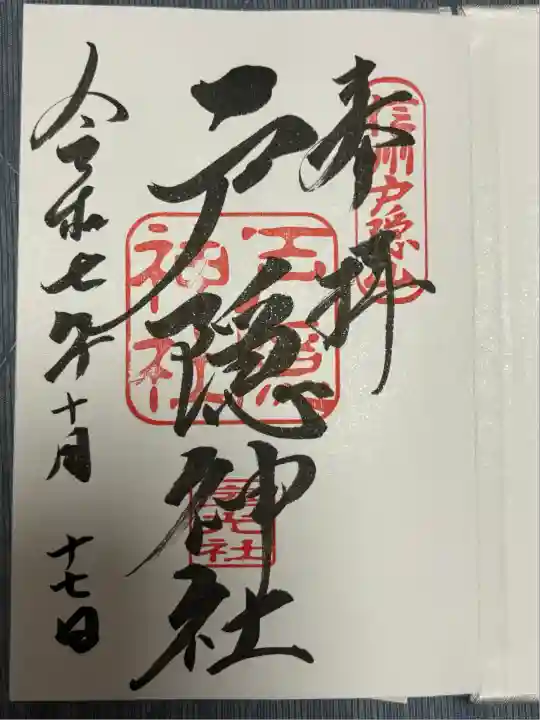 奉拝
信州戸隠山
戸隠神社
戸隠神社
宝光社
令和七年十月十七日